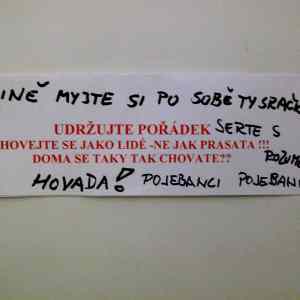 INĚ MYJTE SI PO SOBĚ TY SRAČK
UDRŽUJTE POŘÁDEK SERTE S
HOVEJTE SE JAKO LIDÉ -NE JAK PRASATA !!!
DOMA SE TAKY TAK CHOVATE?? ROZUME
HOVADA! POJEBANCI POJEBAN